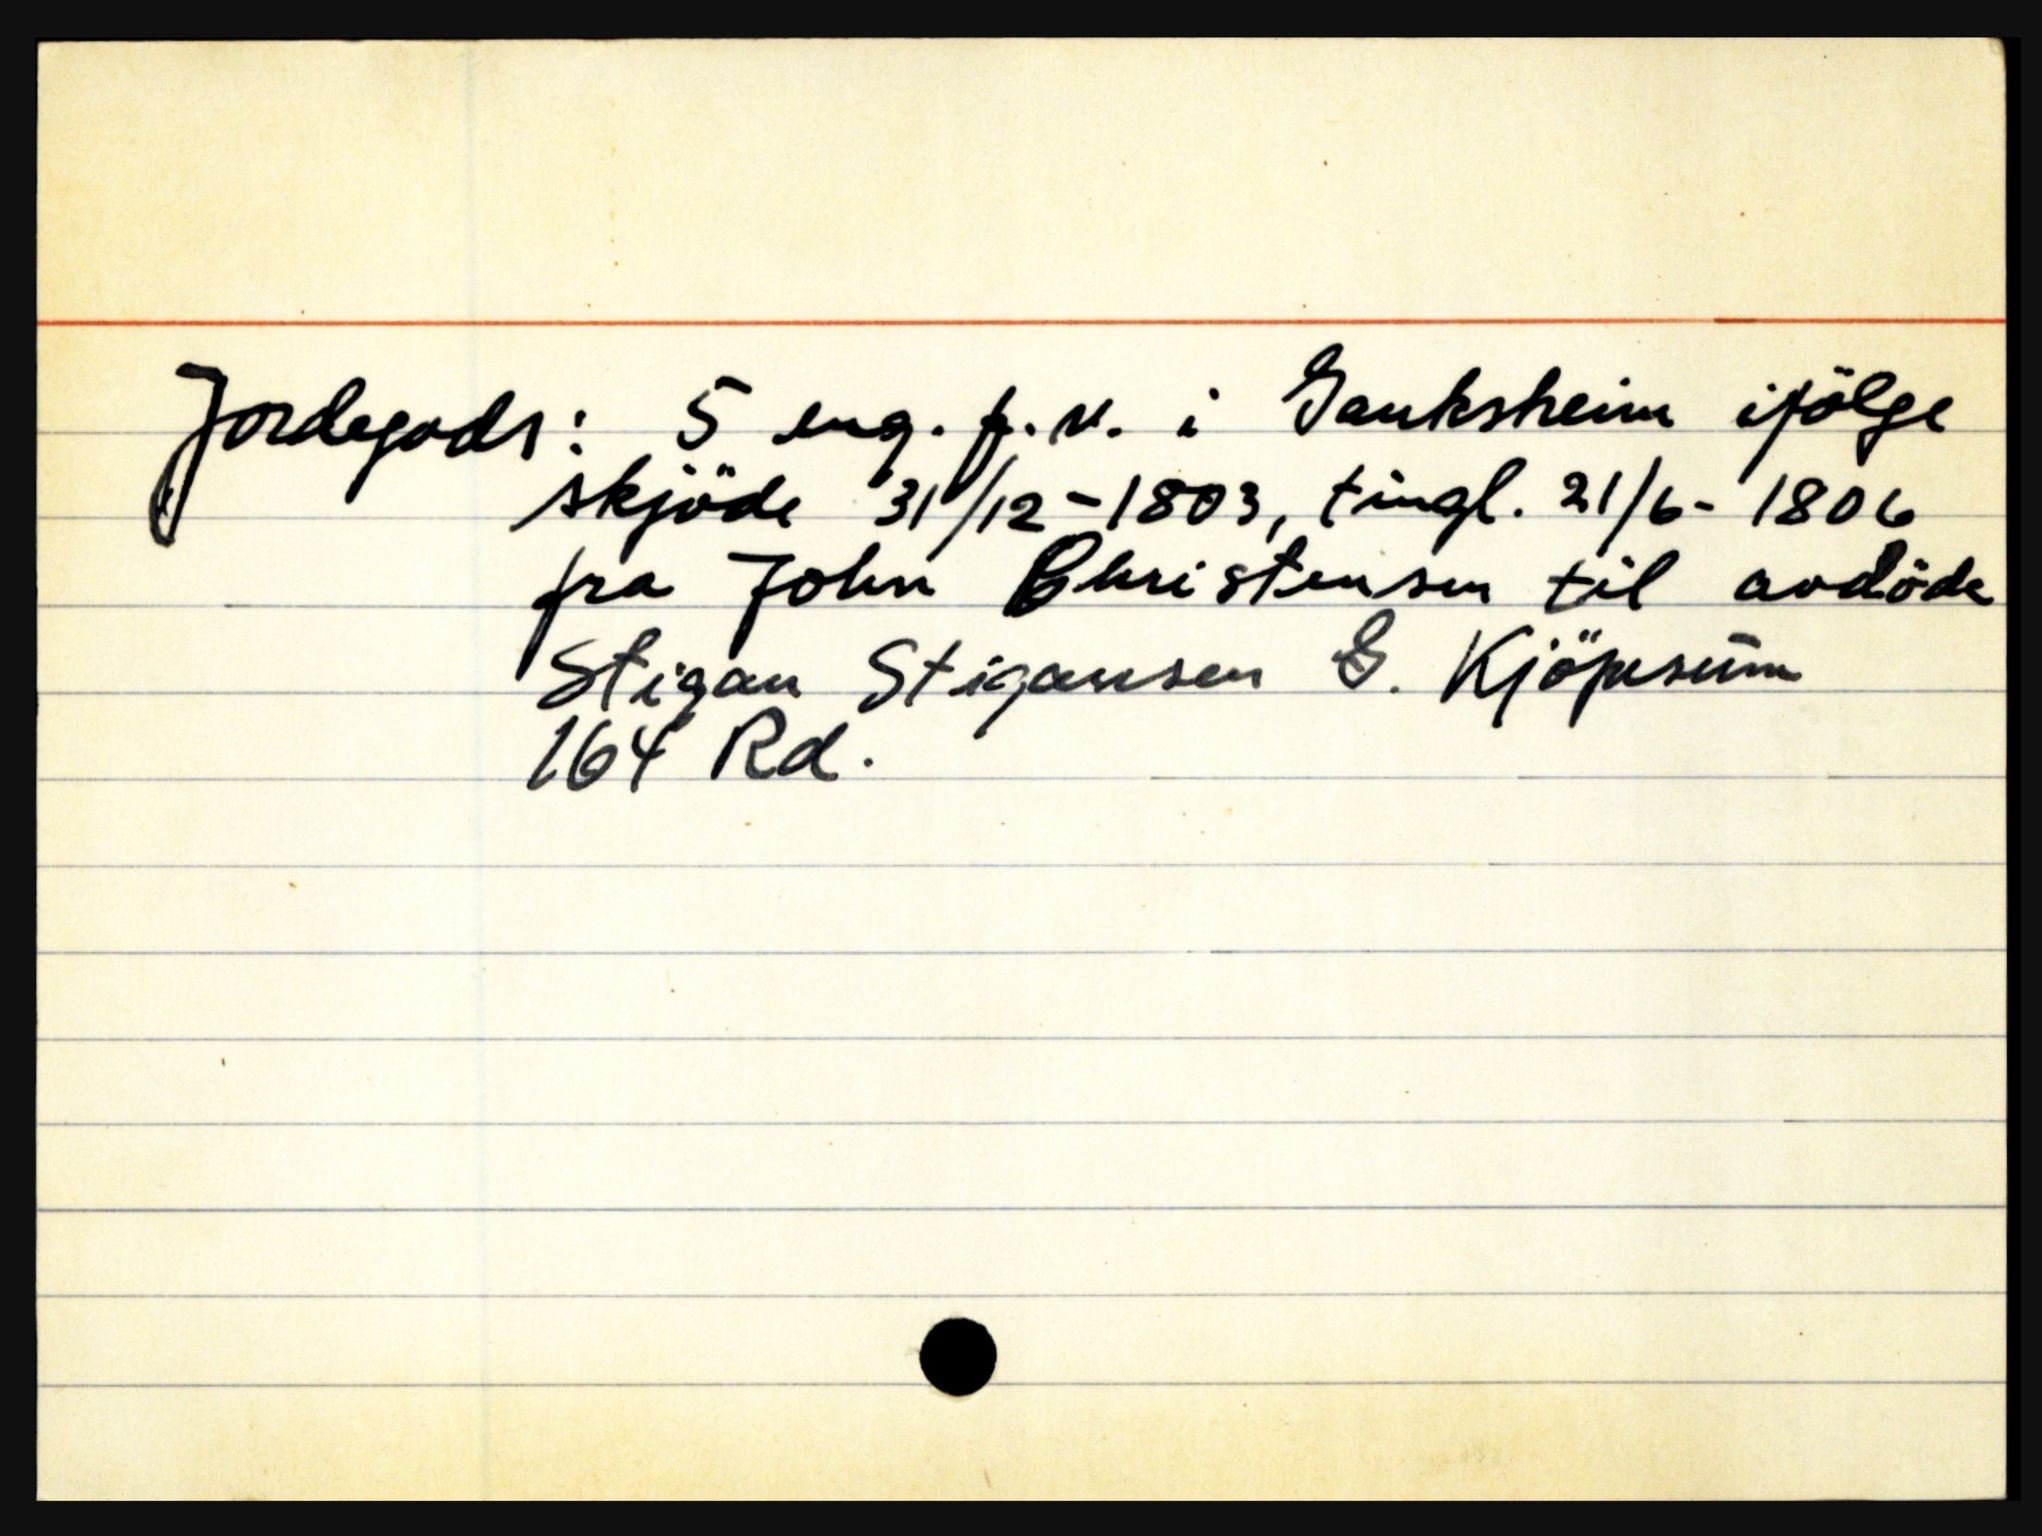 Jordegods: 5 eng. p. v. i Gauksheim ifölge
skjöde 31/12-1803, tingl. 21/6-1806
fra John Christensen til avdöde
Stigan Stigansen G. Kjöpesum
164 Rd.